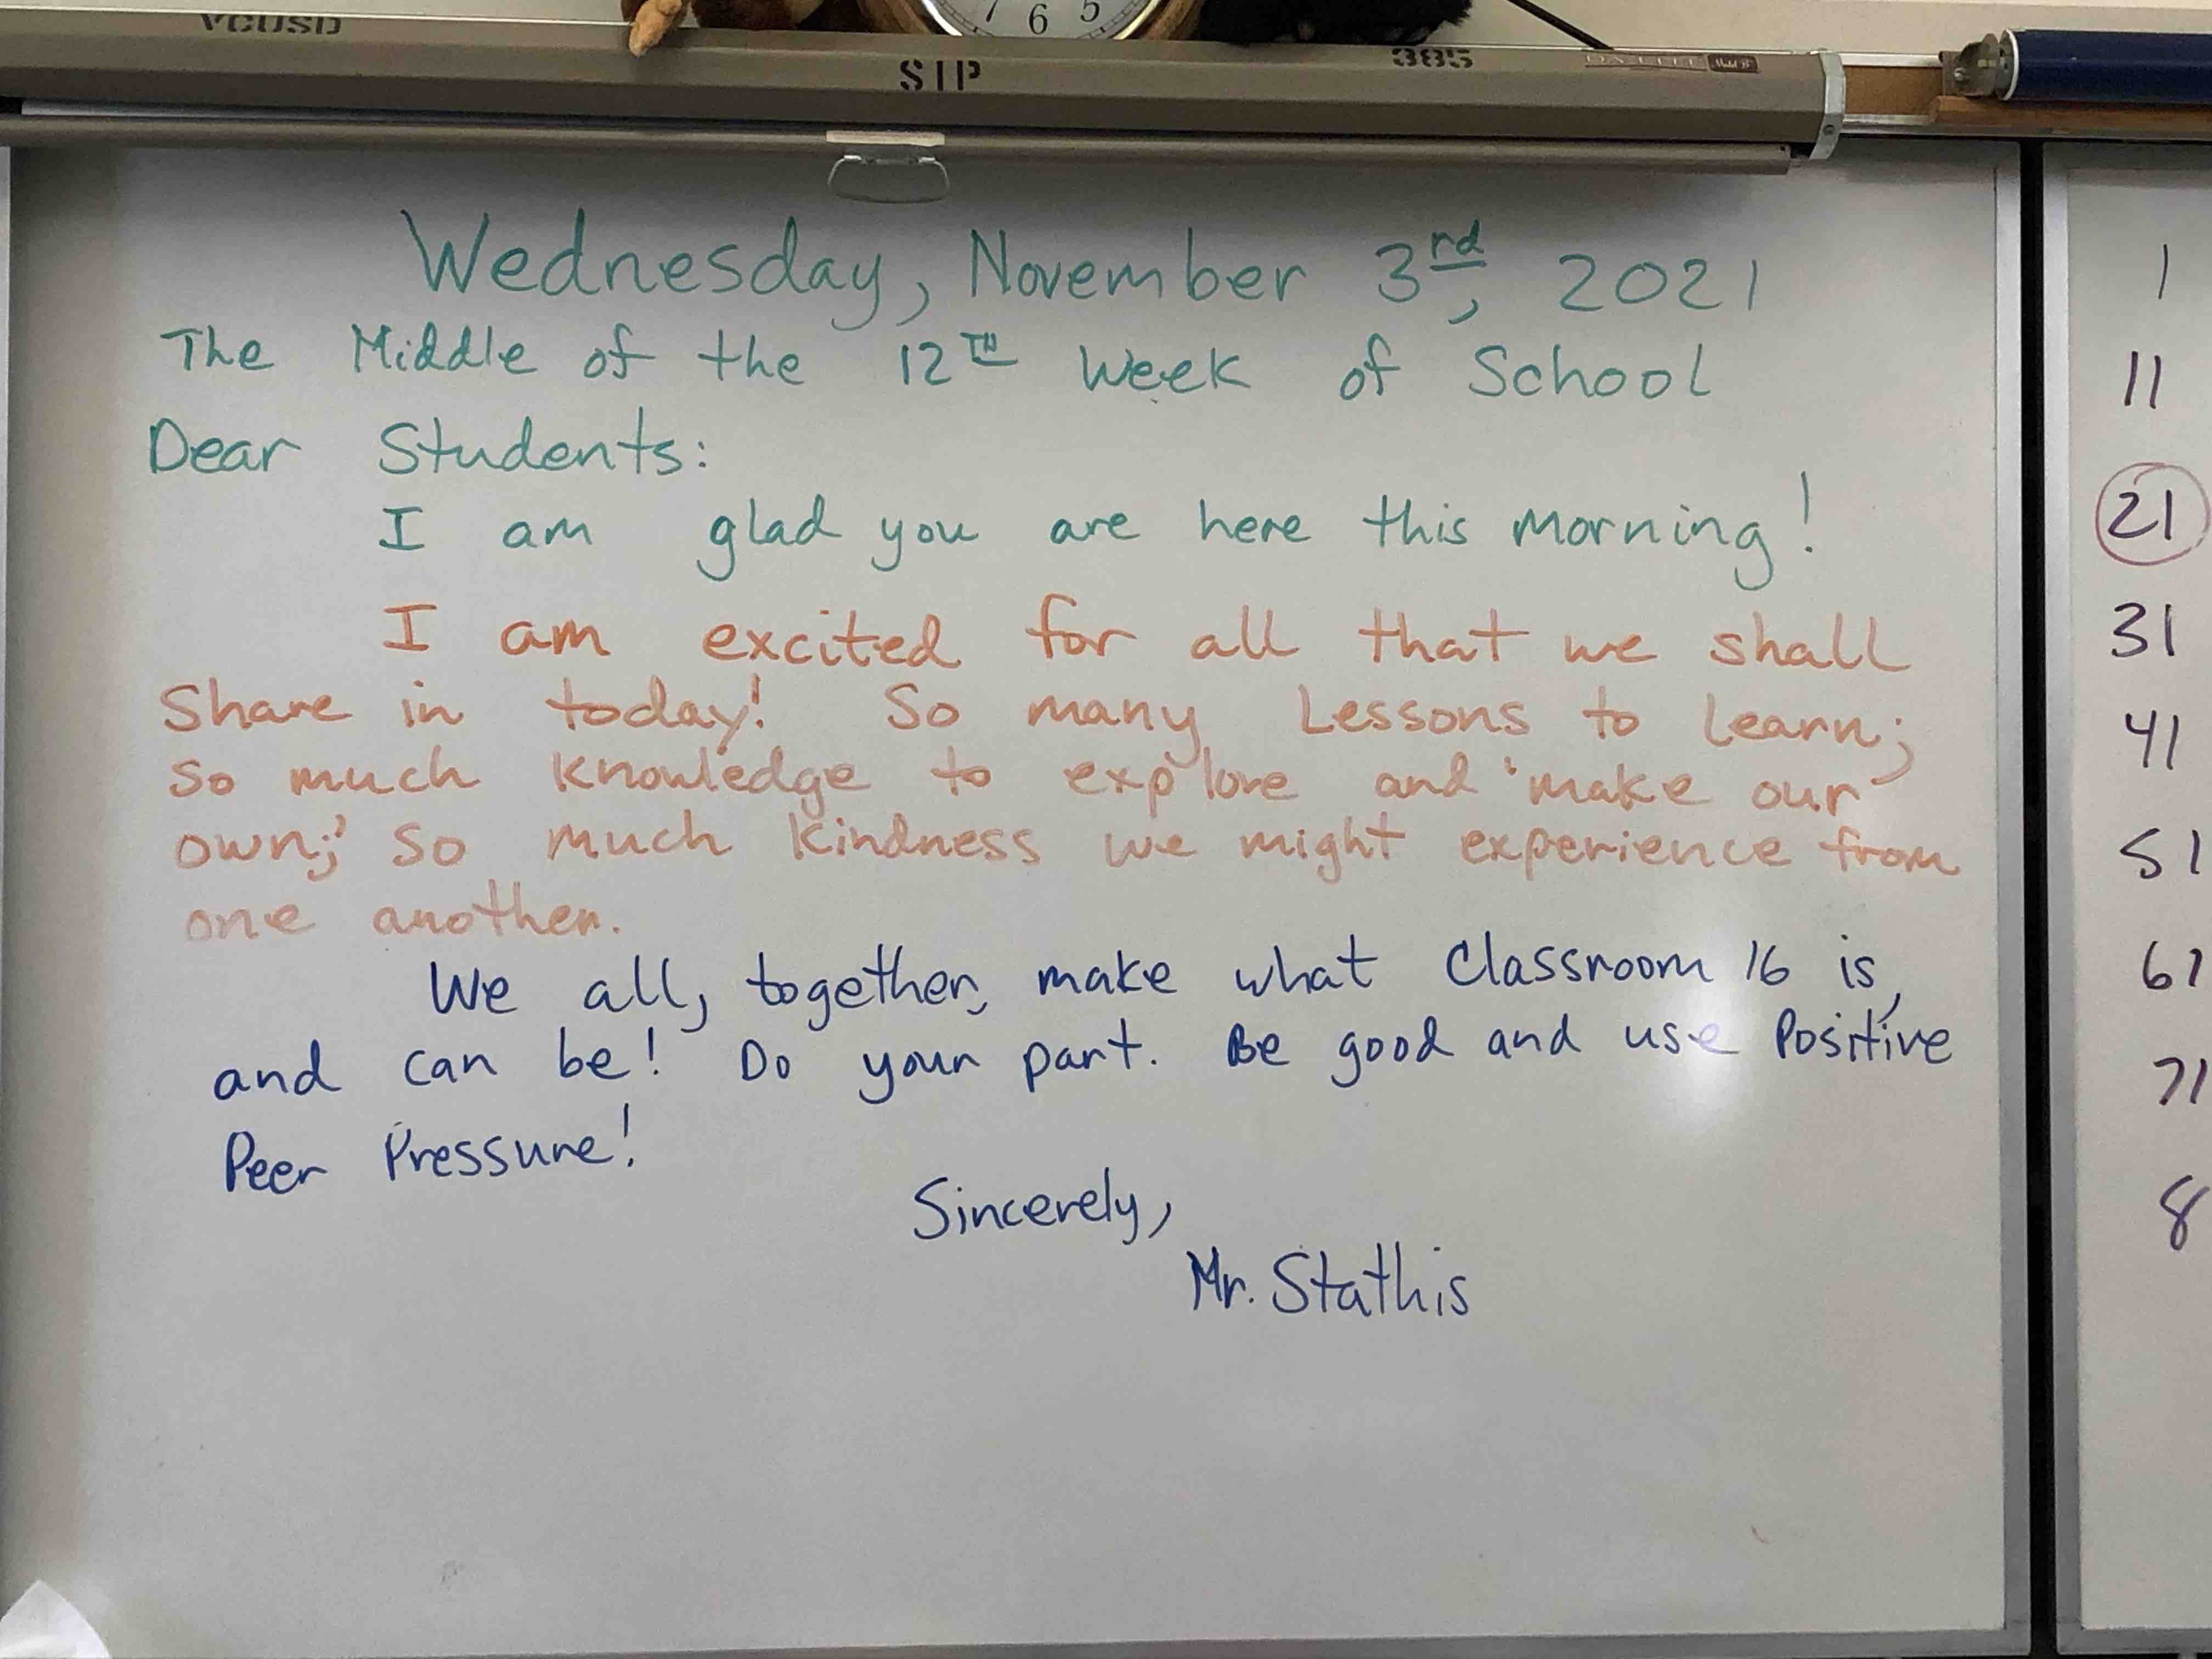 VCUSD
SIP
385
7 6 5
Wednesday, November 3rd, 2021
The Middle of the 12TH Week of School
Dear Students:
I am glad you are here this morning!
I am excited for all that we shall
share in today! So many Lessons to learn;
so much knowledge to explore and 'make our
own;' so much kindness we might experience from
one another.
We all, together, make what Classroom 16 is,
and can be! Do your part. Be good and use Positive
Peer Pressure!
Sincerely,
Mr. Stathis
1
11
21
31
41
51
61
71
8